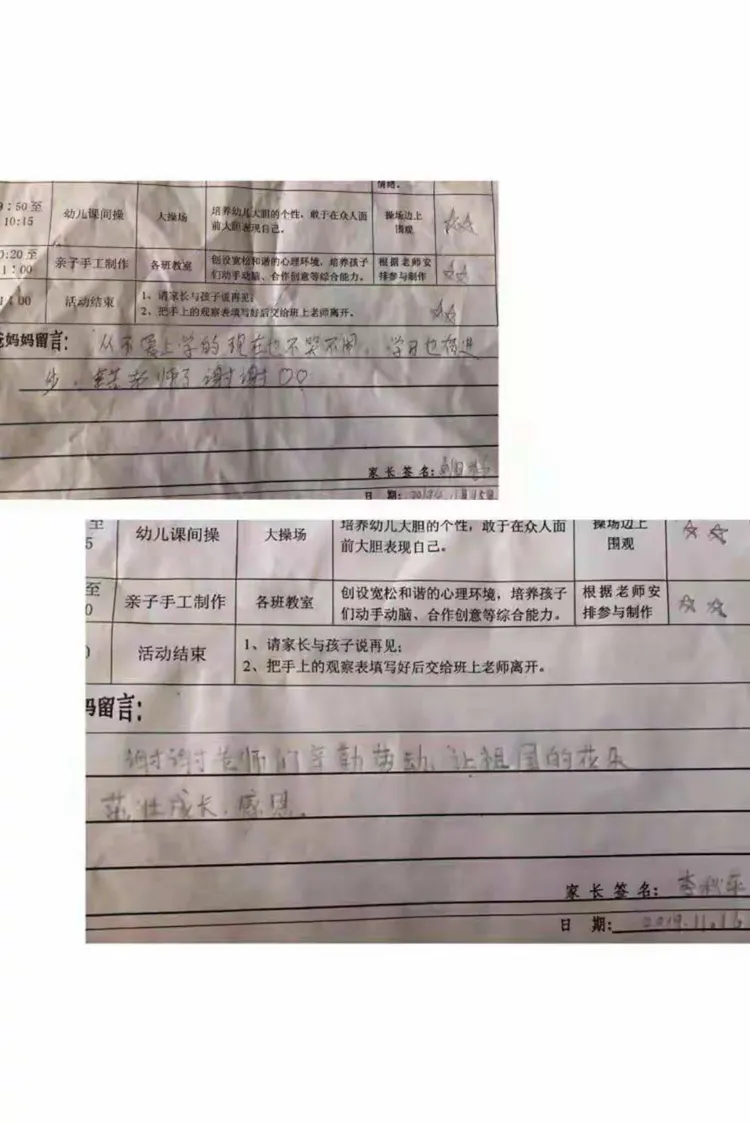 情绪。
9:50至
10:15
幼儿课间操
大操场
培养幼儿大胆的个性,敢于在众人面
前大胆表现自己。
操场边上
围观
0:20至
1:00
亲子手工制作
各班教室
创设宽松和谐的心理环境,培养孩子
们动手动脑、合作创意等综合能力。
根据老师安
排参与制作
1:00
活动结束
1、请家长与孩子说再见;
2、把手上的观察表填写好后交给班上老师离开。
妈妈留言:
从不爱上学的现在也不哭不闹,学习也有进
步,老师了谢谢
家长签名:
日期:2019年11月15日
至
5
幼儿课间操
大操场
培养幼儿大胆的个性,敢于在众人面
前大胆表现自己。
操场边上
围观
至
0
亲子手工制作
各班教室
创设宽松和谐的心理环境,培养孩子
们动手动脑、合作创意等综合能力。
根据老师安
排参与制作
0
活动结束
1、请家长与孩子说再见;
2、把手上的观察表填写好后交给班上老师离开。
妈留言:
谢谢老师们辛勤劳动,让祖国的花朵
茁壮成长,感恩。
家长签名:李秋
日期:2019.11.15